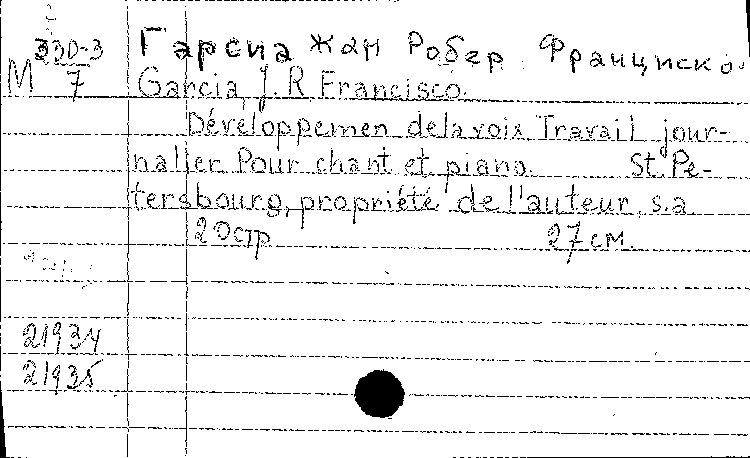 М 330-3/7
Гарсиа Жан Робер Франциско.
Garcia, J. R Francisco.
Développemen delavoix Travail jour-
nalier Pour chant et piano. St. Pe-
tersbourg, propriété de l'auteur, s.a
20стр 27 см.
21934
21935